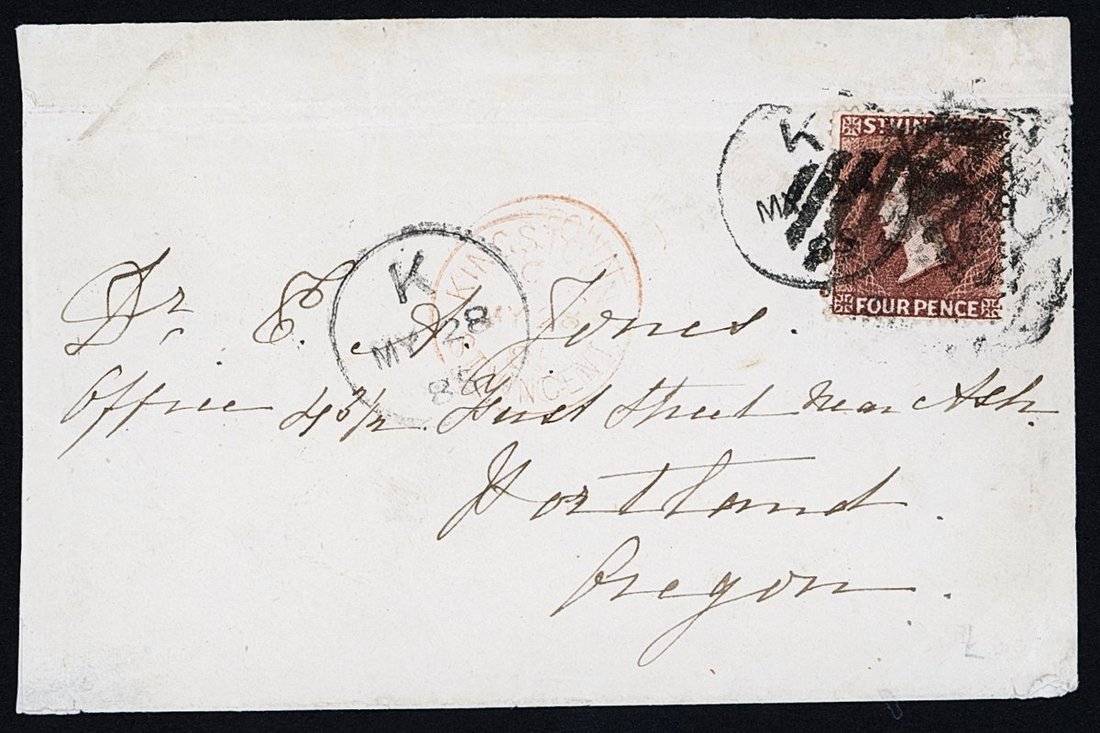 K
MY
85
ST VIN
FOUR PENCE
KINGSTOWN
ST VINCENT
K
MY 28
85
Dr E. A. Jones.
Office 45½ First Street near Ash.
Portland.
Oregon.